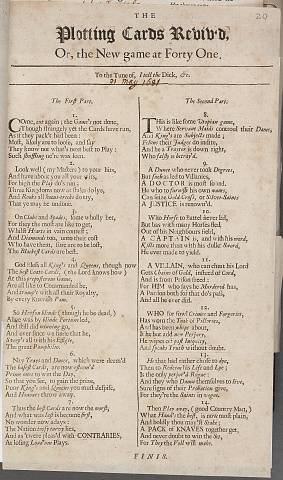 THE
29
Plotting Cards Reviv'd,
Or, the New game at Forty One.
To the Tune of, I tell the Dick, &c.
31 May 1681
The First Part.
1.
COme, cut again; the Game's not done,
Though strangely yet the Cards have run,
As if they pack't had been:
Most, likely are to loose, and say
They know not what's next best to Play:
Such shuffling ne're was seen.
2.
Look well (my Masters) to your hits,
And have about you all your wits,
For high the Play do's run:
Three Kingdoms now at stake do lye,
And Rooks all
That you may be undone.
3.
On Clubs and Spades, some wholly bet,
For they the most are like to get,
Whilst Hearts in vain contest:
And Diamonds too, unto their cost
Who have them, sure are to be lost,
The Blackest Cards are best.
4.
God bless all King's and Queens, though now
The best Court-Cards, (the Lord knows how)
At
And all like to Commanded be,
And with all their Royalty,
By every Knavish Pam.
5.
No Heathen blinde (though he be dead,)
Alice was by blinde Fortune led,
And still did winning go,
And ever since we finde that he,
Swops all with his
The great Pamphilio.
6.
Nay Treys and Deuces, which were deem'd
The basest Cards, are more esteem'd
Prove now to win the Day,
So that you see, to gain the prize,
Poor King's and Queens you must despise,
And Honours throw away.
7.
Thus the best Cards are now the worst,
And what was last is become first,
No wonder now adays:
The Nation topsy turvy lies,
And as 'twere pleas'd with CONTRARIES,
The Second Part:
8.
This is like some Utopian game,
Where Servant Maids controul their Dame,
And King's are Subjects made;
Felons their Judges do indite,
And he a Traitor is down right,
Who falsly is betray'd.
9.
A Dunce who never took Degrees,
But such as led to Villanies,
A DOCTOR is most found.
He who to his own
Can seize Gold Cross, or Silver-Saints
A JUSTICE is renown'd.
10.
Who Horse to Battel never led,
But has with many Horses fled,
Out of his Neighbours field,
A CAPTAIN is, and with his word,
Kills more than with his either Sword,
He ever made to yield.
11.
A VILLAIN, who can cheat his Lord
Gets Chaire of Gold, instead of Cord,
And is from Prison freed:
For HIM who says he Murdered has,
A Pardon both for that do's pass,
And all he ever did.
12.
WHO for lewd Crimes and Forgeries,
Has worn the Pillories,
And has been whipt about,
If he but add new Perjury,
He wipes off past Iniquity,
And speaks Truth without doubt.
13.
He that had either chose to dye,
Then to Redeem his Life and Lye;
Is the only perjur'd Rogue:
And they who Damn themselves to live,
Sure signs of their Probation give,
For they're the Saints in vogue.
14.
Then Play away, (good Country Man,)
What Hand's the best, is now most plain,
And boldly thou may'st Stake;
A PACK of KNAVES together get,
And never doubt to win the Set,
For They the Vole will make.
FINIS.